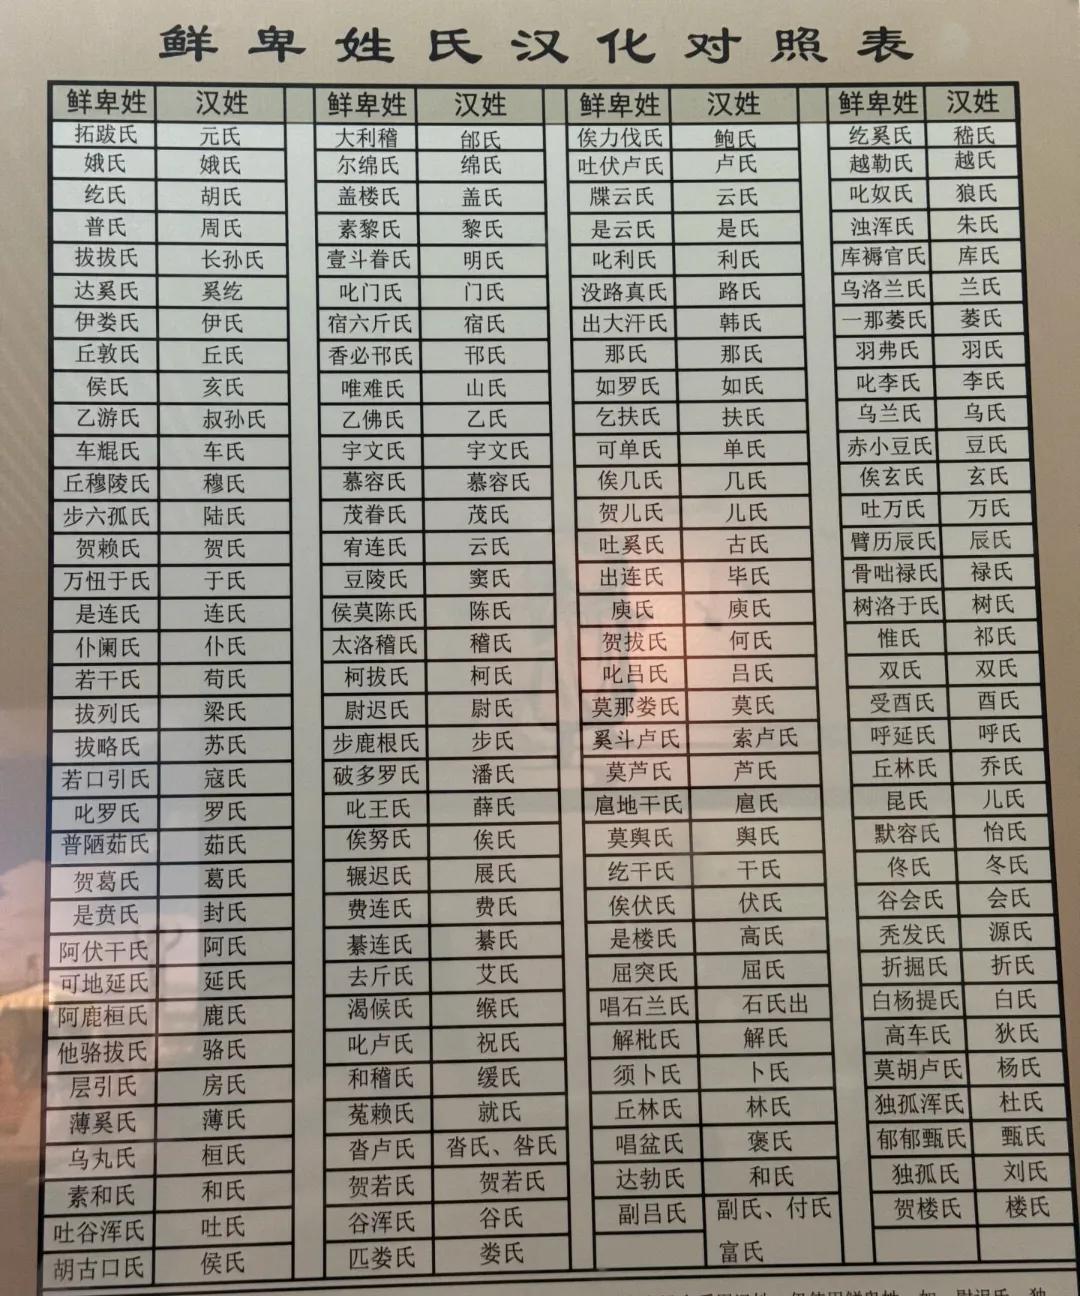 鲜卑姓氏汉化对照表
鲜卑姓 汉姓 鲜卑姓 汉姓 鲜卑姓 汉姓 鲜卑姓 汉姓
拓跋氏 元氏 大利稽 郃氏 俟力伐氏 鲍氏 纥奚氏 嵇氏
娥氏 娥氏 尔绵氏 绵氏 吐伏卢氏 卢氏 越勒氏 越氏
纥氏 胡氏 盖楼氏 盖氏 牒云氏 云氏 叱奴氏 狼氏
普氏 周氏 素黎氏 黎氏 是云氏 是氏 浊浑氏 朱氏
拔拔氏 长孙氏 壹斗眷氏 明氏 叱利氏 利氏 库褥官氏 库氏
达奚氏 奚纥 叱门氏 门氏 没路真氏 路氏 乌洛兰氏 兰氏
伊娄氏 伊氏 宿六斤氏 宿氏 出大汗氏 韩氏 一那蒌氏 蒌氏
丘敦氏 丘氏 香必邗氏 邗氏 那氏 那氏 羽弗氏 羽氏
侯氏 亥氏 唯难氏 山氏 如罗氏 如氏 叱李氏 李氏
乙游氏 叔孙氏 乙佛氏 乙氏 乞扶氏 扶氏 乌兰氏 乌氏
车焜氏 车氏 宇文氏 宇文氏 可单氏 单氏 赤小豆氏 豆氏
丘穆陵氏 穆氏 慕容氏 慕容氏 俟几氏 几氏 俟玄氏 玄氏
步六孤氏 陆氏 茂眷氏 茂氏 贺儿氏 儿氏 吐万氏 万氏
贺赖氏 贺氏 宥连氏 云氏 吐奚氏 古氏 臂历辰氏 辰氏
万忸于氏 于氏 豆陵氏 窦氏 出连氏 毕氏 骨咄禄氏 禄氏
是连氏 连氏 侯莫陈氏 陈氏 庾氏 庾氏 树洛于氏 树氏
仆阑氏 仆氏 太洛稽氏 稽氏 贺拔氏 何氏 惟氏 祁氏
若干氏 苟氏 柯拔氏 柯氏 叱吕氏 吕氏 双氏 双氏
拔列氏 梁氏 尉迟氏 尉氏 莫那娄氏 莫氏 受酉氏 酉氏
拔略氏 苏氏 步鹿根氏 步氏 奚斗卢氏 索卢氏 呼延氏 呼氏
若口引氏 寇氏 破多罗氏 潘氏 莫芦氏 芦氏 丘林氏 乔氏
叱罗氏 罗氏 叱王氏 薛氏 扈地干氏 扈氏 昆氏 儿氏
普陋茹氏 茹氏 俟努氏 俟氏 莫舆氏 舆氏 默容氏 怡氏
贺葛氏 葛氏 辗迟氏 展氏 纥干氏 干氏 佟氏 冬氏
是贲氏 封氏 费连氏 费氏 俟伏氏 伏氏 谷会氏 会氏
阿伏干氏 阿氏 綦连氏 綦氏 是楼氏 高氏 秃发氏 源氏
可地延氏 延氏 去斤氏 艾氏 屈突氏 屈氏 折掘氏 折氏
阿鹿桓氏 鹿氏 渴候氏 缑氏 唱石兰氏 石氏出 白杨提氏 白氏
他骆拔氏 骆氏 叱卢氏 祝氏 解枇氏 解氏 高车氏 狄氏
层引氏 房氏 和稽氏 缓氏 须卜氏 卜氏 莫胡卢氏 杨氏
薄奚氏 薄氏 菟赖氏 就氏 丘林氏 林氏 独孤浑氏 杜氏
乌丸氏 桓氏 沓卢氏 沓氏、咎氏 唱盆氏 褒氏 郁郁甄氏 甄氏
素和氏 和氏 贺若氏 贺若氏 达勃氏 和氏 独孤氏 刘氏
吐谷浑氏 吐氏 谷浑氏 谷氏 副吕氏 副氏、付氏 贺楼氏 楼氏
胡古口氏 侯氏 匹娄氏 娄氏 富氏